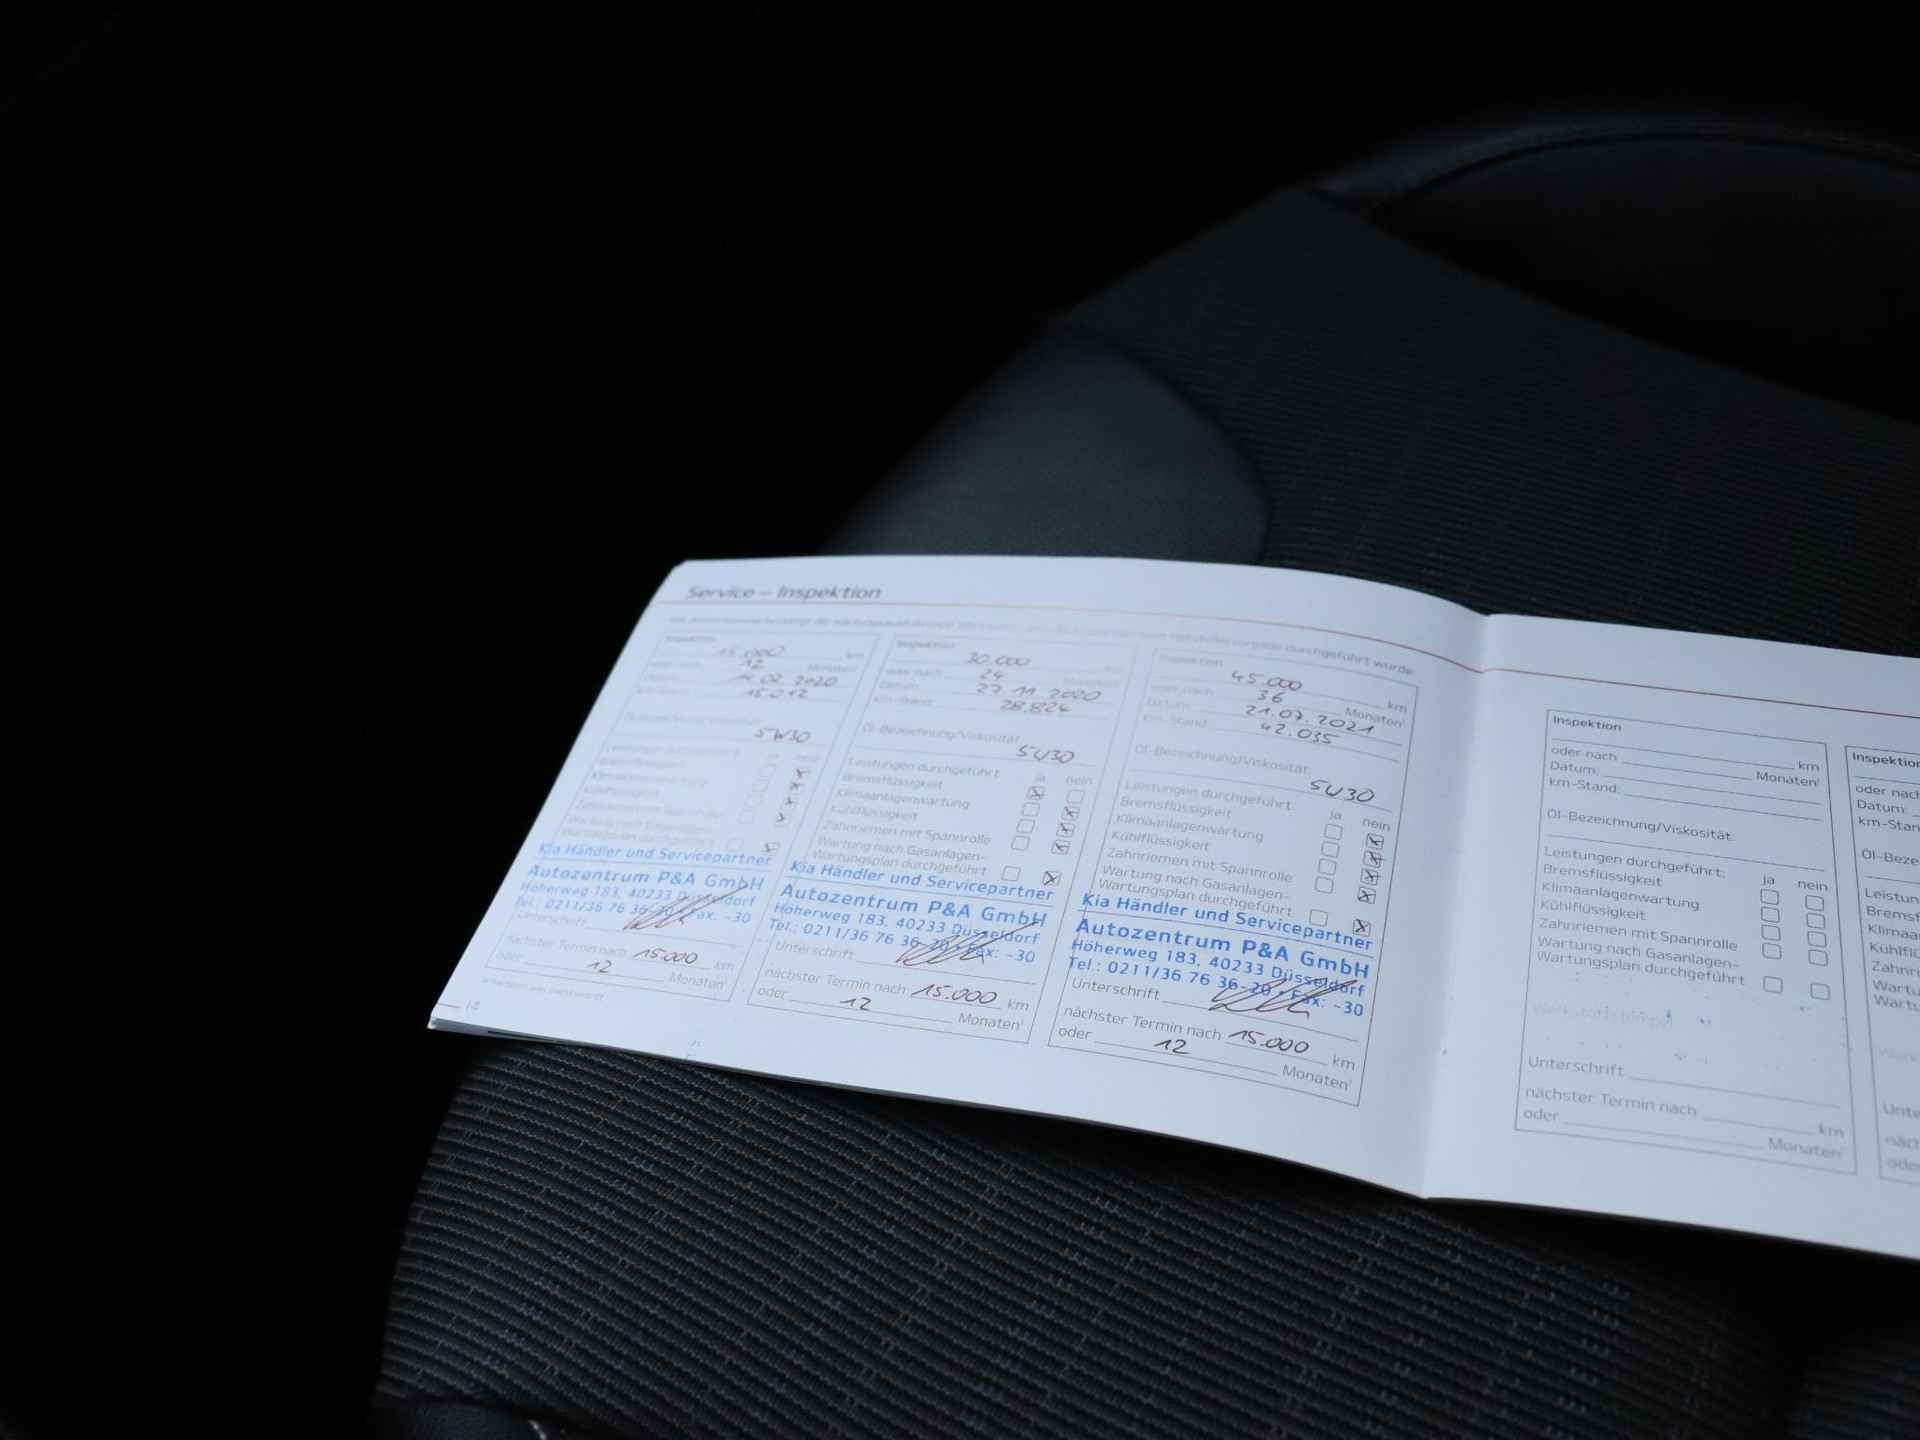 Service – Inspektion
durchgeführt wurde.
Inspektion
15.000 km
12 Monaten¹
02.2020
15.012
5W30
Kia Händler und Servicepartner
Autozentrum P&A GmbH
Höherweg 183, 40233 Düsseldorf
Tel.: 0211/36 76 36-20 · Fax: -30
Unterschrift
nächster Termin nach 15.000 km
oder 12 Monaten¹
14
Inspektion
30.000 km
oder nach 24 Monaten¹
Datum: 27.11.2020
km-Stand: 28.824
Öl-Bezeichnung/Viskosität:
5W30
Leistungen durchgeführt: ja nein
Bremsflüssigkeit
Klimaanlagenwartung
Kühlflüssigkeit
Zahnriemen mit Spannrolle
Wartung nach Gasanlagen-
Wartungsplan durchgeführt
Kia Händler und Servicepartner
Autozentrum P&A GmbH
Höherweg 183, 40233 Düsseldorf
Tel.: 0211/36 76 36-20 · Fax: -30
Unterschrift
nächster Termin nach 15.000 km
oder 12 Monaten¹
Inspektion
45.000 km
oder nach 36 Monaten¹
Datum: 21.07.2021
km-Stand: 42.035
Öl-Bezeichnung/Viskosität:
5W30
Leistungen durchgeführt: ja nein
Bremsflüssigkeit
Klimaanlagenwartung
Kühlflüssigkeit
Zahnriemen mit Spannrolle
Wartung nach Gasanlagen-
Wartungsplan durchgeführt
Kia Händler und Servicepartner
Autozentrum P&A GmbH
Höherweg 183, 40233 Düsseldorf
Tel.: 0211/36 76 36-20 · Fax: -30
Unterschrift
nächster Termin nach 15.000 km
oder 12 Monaten¹
Inspektion
km
oder nach Monaten¹
Datum:
km-Stand:
Öl-Bezeichnung/Viskosität:
Leistungen durchgeführt: ja nein
Bremsflüssigkeit
Klimaanlagenwartung
Kühlflüssigkeit
Zahnriemen mit Spannrolle
Wartung nach Gasanlagen-
Wartungsplan durchgeführt
Werkstattstempel
Unterschrift
nächster Termin nach km
oder Monaten¹
Inspektion
oder nach
Datum:
km-Stan
Öl-Beze
Leistun
Bremsf
Klimaa
Kühlfl
Zahnri
Wartu
Wartu
Unte
näch
oder